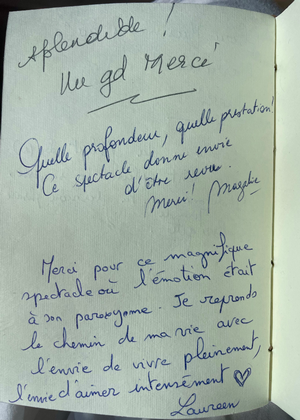 splendide !
Un gd Merci
Quelle profondeur, quelle prestation !
Ce spectacle donne envie
d'être revu.
Merci !
Merci pour ce magnifique
spectacle où l'émotion était
à son paroxysme. Je reprends
le chemin de ma vie avec
l'envie de vivre pleinement,
l'envie d'aimer intensément ♡
Laureen